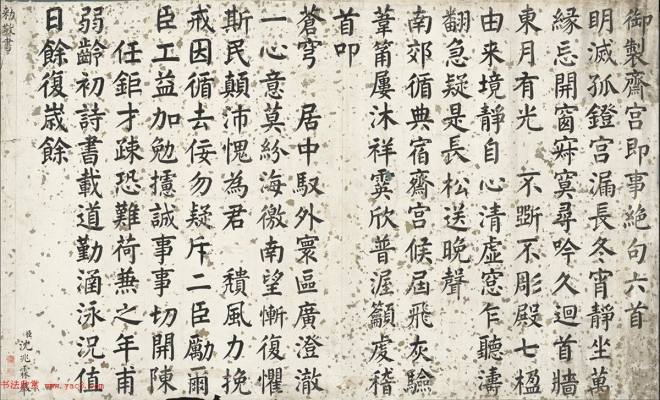 御製齋宮即事絶句六首
明滅孤鐙宮漏長冬宵靜坐萬
緣忘開窗寂寞尋吟久迴首牆
東月有光 不斲不彫殿七楹
由来境靜自心清虛窓乍聽濤
翻急疑是長松送晚聲
南郊循典宿齋宮候屆飛灰驗
葦筩屢沐祥霙欣普渥籲虔稽
首叩
蒼穹 居中馭外寰區廣澄澈
一心意莫紛海徼南望慚復懼
斯民顛沛愧為君 穨風力挽
戒因循去佞勿疑斥二臣勵爾
臣工益加勉攄誠事事切開陳
任鉅才疎恐難荷兼之年甫
弱齡初詩書載道勤涵泳況值
日餘復歲餘
臣沈兆霖奉
勅敬書
书法欣赏 www.yac8.com